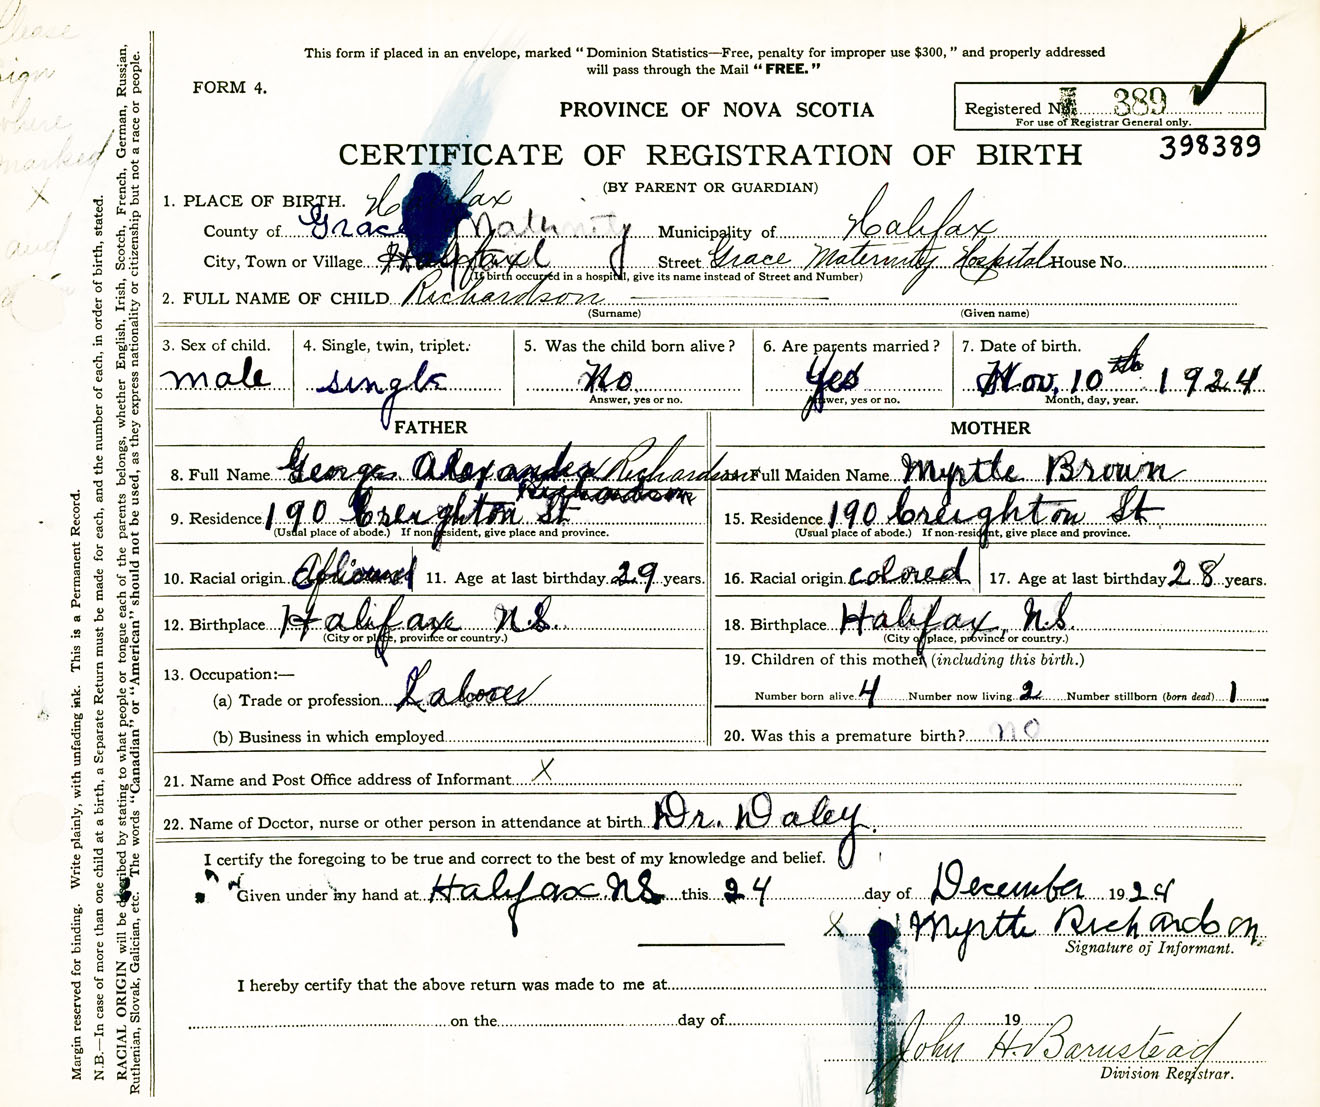 Please
sign
where
marked
X
and
This form if placed in an envelope, marked “Dominion Statistics—Free, penalty for improper use $300,” and properly addressed
will pass through the Mail “FREE.”
FORM 4.
PROVINCE OF NOVA SCOTIA
Registered No. 389
For use of Registrar General only.
398389
CERTIFICATE OF REGISTRATION OF BIRTH
(BY PARENT OR GUARDIAN)
1. PLACE OF BIRTH. Halifax
County of Grace Maternity Municipality of Halifax
City, Town or Village Halifax Street Grace Maternity Hospital House No.
(If birth occurred in a hospital, give its name instead of Street and Number)
2. FULL NAME OF CHILD Richardson
(Surname) (Given name)
3. Sex of child. 4. Single, twin, triplet. 5. Was the child born alive? 6. Are parents married? 7. Date of birth.
male single No Yes Nov. 10th 1924
Answer, yes or no. Answer, yes or no. Month, day, year.
FATHER MOTHER
8. Full Name George Alexander Richardson Full Maiden Name Myrtle Brown
Richardson
9. Residence 190 Creighton St 15. Residence 190 Creighton St
(Usual place of abode.) If non-resident, give place and province. (Usual place of abode.) If non-resident, give place and province.
10. Racial origin 11. Age at last birthday 29 years. 16. Racial origin colored 17. Age at last birthday 28 years.
12. Birthplace Halifax N.S. 18. Birthplace Halifax, N.S.
(City or place, province or country.) (City or place, province or country.)
19. Children of this mother (including this birth.)
13. Occupation:—
(a) Trade or profession Laborer Number born alive 4 Number now living 2 Number stillborn (born dead) 1
(b) Business in which employed 20. Was this a premature birth? no
21. Name and Post Office address of Informant X
22. Name of Doctor, nurse or other person in attendance at birth Dr. Daley.
I certify the foregoing to be true and correct to the best of my knowledge and belief.
Given under my hand at Halifax N.S. this 24 day of December 1924
X Myrtle Richardson
Signature of Informant.
I hereby certify that the above return was made to me at
on the day of 19
John H. Barnstead
Division Registrar.
Margin reserved for binding. Write plainly, with unfading ink. This is a Permanent Record.
N.B.—In case of more than one child at a birth, a Separate Return must be made for each, and the number of each, in order of birth, stated.
RACIAL ORIGIN will be described by stating to what people or tongue each of the parents belongs, whether English, Irish, Scotch, French, German, Russian,
Ruthenian, Slovak, Galician, etc. The words “Canadian” or “American” should not be used, as they express nationality or citizenship but not a race or people.